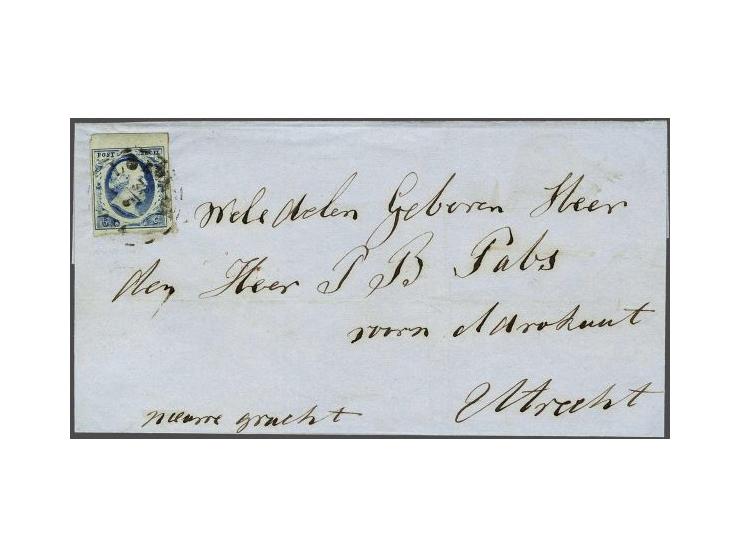 POST ZEGEL
5 C
Weledelen Geboren Heer
den Heer P B Pabs
voorn Advokaat
nieuwe gracht
Utrecht